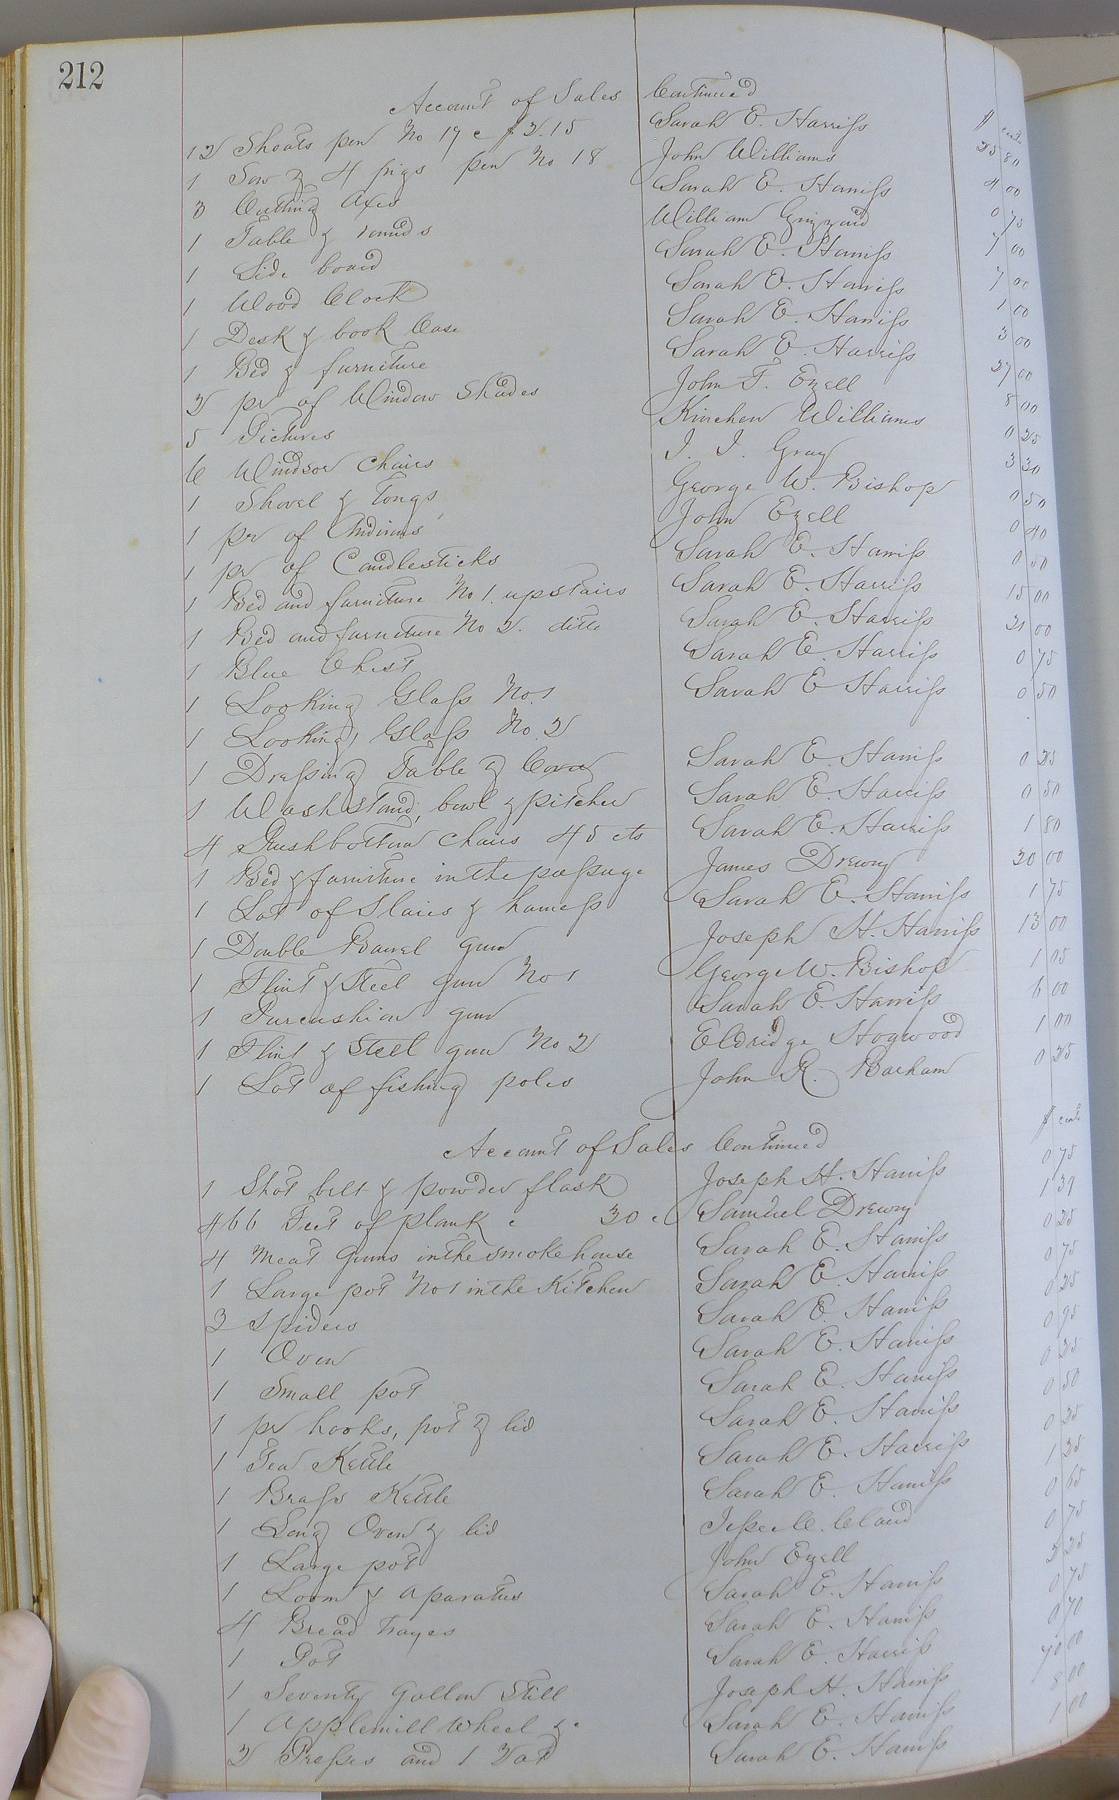 212
Account of Sales Continued
$ cents
12 Shoats pen No 17 @ $2.15 Sarah E. Harriss 25 80
1 Sow & 4 pigs pen No 18 John Williams 4 00
3 Cutting Axes Sarah E. Harriss 0 75
1 Table & rounds William Grizzard 7 00
1 Side board Sarah E. Harriss 7 00
1 Wood Clock Sarah E. Harriss 1 00
1 Desk & book Case Sarah E. Harriss 3 00
1 Bed & furniture Sarah E. Harriss 27 00
2 pr of Window Shades John T. Ezell 8 00
5 Pictures Kinchen Williams 0 25
6 Windsor Chairs J. J. Gray 3 30
1 Shovel & Tongs George W. Bishop 0 50
1 pr of Andirons John Ezell 0 40
1 pr of Candlesticks Sarah E. Harriss 0 50
1 Bed and furniture No 1. upstairs Sarah E. Harriss 15 00
1 Bed and furniture No 2. ditto Sarah E. Harriss 21 00
1 Blue Chest Sarah E. Harriss 0 75
1 Looking Glass No. 1 Sarah E Harriss 0 50
1 Looking Glass No. 2
1 Dressing Table & Cover Sarah E. Harriss 0 25
1 Washstand, bowl & pitcher Sarah E. Harriss 0 50
4 Rushbottom Chairs 45 cts Sarah E. Harriss 1 80
1 Bed & furniture in the passage James Drewry 20 00
1 Lot of Slaies & harness Sarah E. Harriss 1 75
1 Double Barrel gun Joseph H. Harriss 13 00
1 Flint & Steel gun No 1 George W. Bishop 1 05
1 Purcushion gun Sarah E. Harriss 6 00
1 Flint & Steel gun No 2 Eldridge Hogwood 1 00
1 Lot of fishing poles John R. Barham 0 25
Account of Sales Continued $ cents
1 Shot belt & powder flask Joseph H. Harriss 0 75
466 Feet of plank @ 30 c Samuel Drewry 1 39
4 Meat Gums in the smoke house Sarah E. Harriss 0 25
1 Large pot No 1 in the Kitchen Sarah E. Harriss 0 75
3 Spiders Sarah E. Harriss 0 25
1 Oven Sarah E. Harriss 0 95
1 Small pot Sarah E. Harriss 0 25
1 pr hooks, pot & lid Sarah E. Harriss 0 50
1 Tea Kettle Sarah E. Harriss 0 25
1 Brass Kettle Sarah E. Harriss 1 25
1 Long Oven & lid Jesse C. Claud 0 65
1 Large pot John Ezell 0 75
1 Loom & Aparatus Sarah E. Harriss 2 25
4 Bread Trayes Sarah E. Harriss 0 75
1 Pot Sarah E. Harriss 0 70
1 Seventy Gallon Still Joseph H. Harriss 70 00
1 Applemill Wheel &c Sarah E. Harriss 8 00
2 Presses and 1 Vat Sarah E. Harriss 1 00